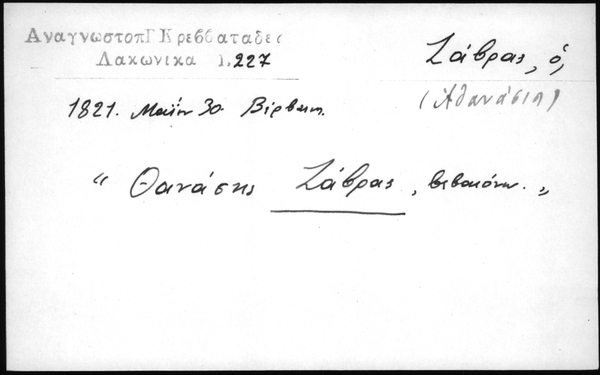 ΑναγνωστοπΓ Κρεββαταδες
Λακωνικα 1,227
Ζάβρας, ὁ,
(Ἀθανάσιη)
1821. Μαΐου 30. Βέρβενα.
“ Θανάσης Ζάβρας, βεβαιόνω. „